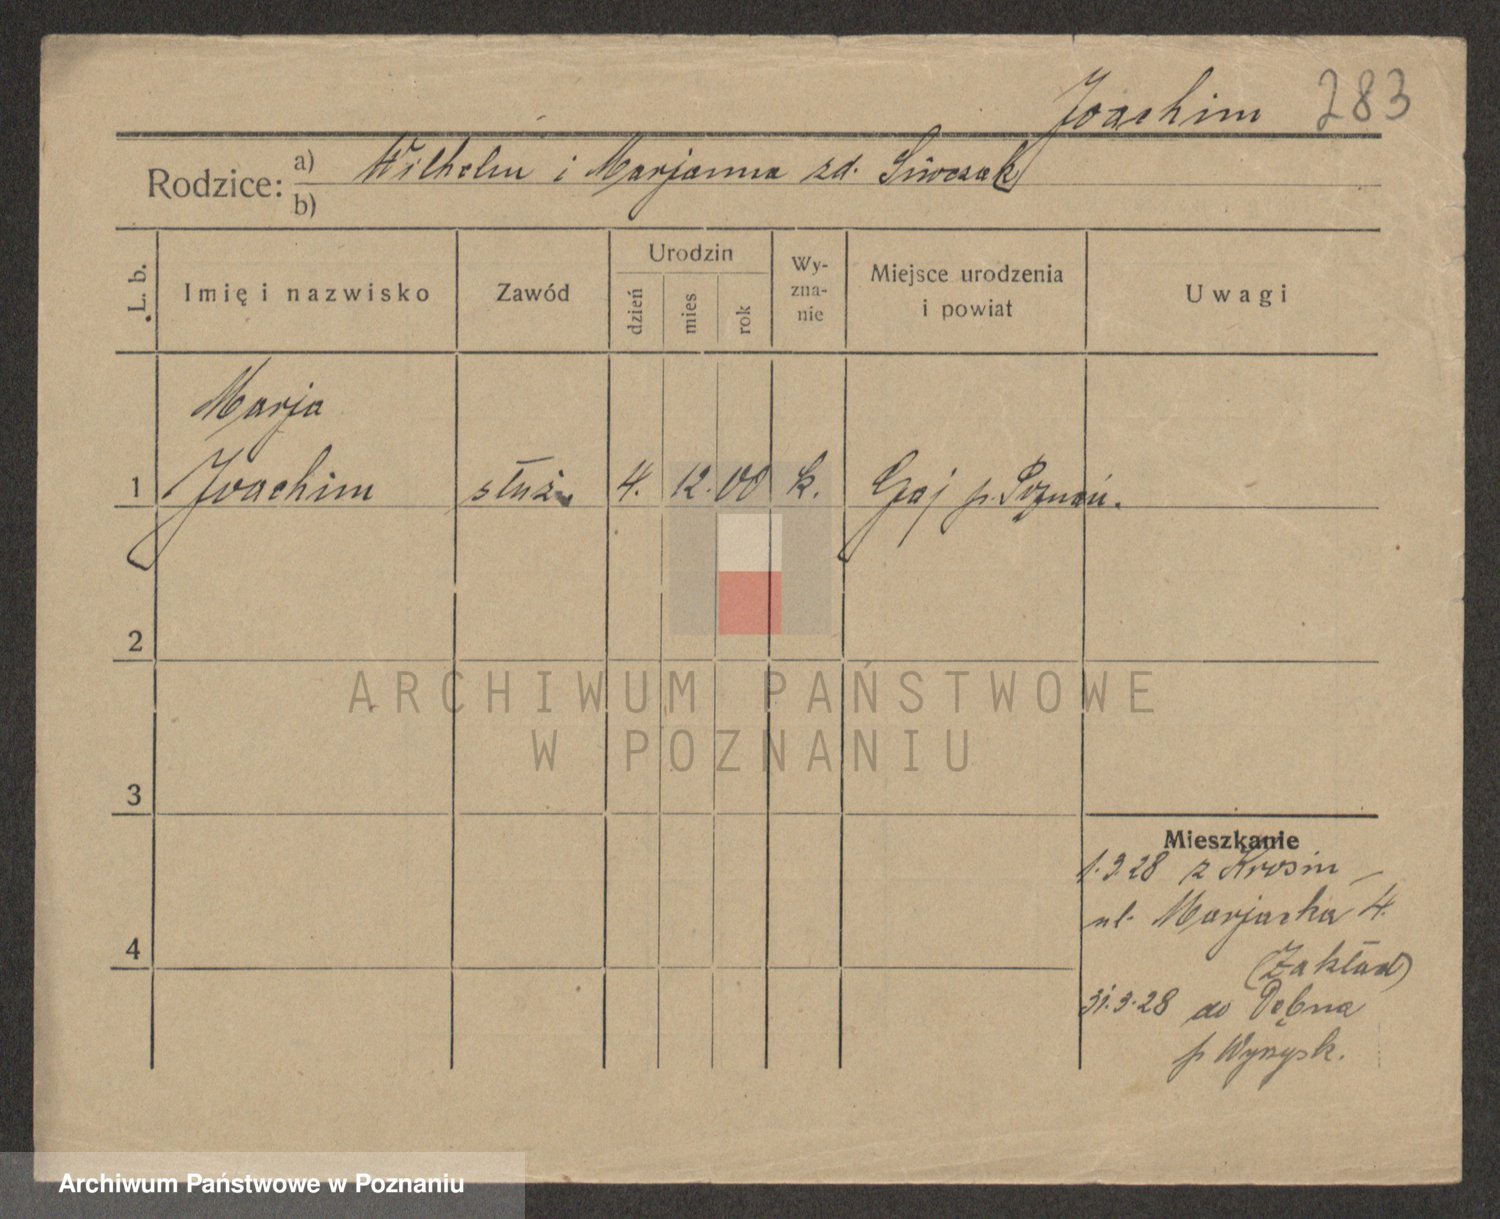 Joachim 283
Rodzice: a) Wilhelm i Marjanna zd. Siwczak
b)
L. b. Imię i nazwisko Zawód Urodzin dzień mies rok Wy-zna-nie Miejsce urodzenia i powiat Uwagi
Marja
1 Joachim służ. 4. 12. 00 k. Gaj p. Poznań.
2
ARCHIWUM PAŃSTWOWE
W POZNANIU
3
Mieszkanie
1.3.28 z Krosin
ul. Marjacka 4.
4
(Zakład)
31.3.28 do Dębna
p Wyrzysk.
Archiwum Państwowe w Poznaniu